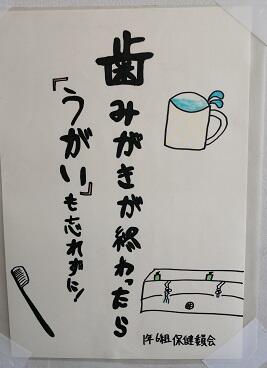 歯みがきが終わったら
「うがい」も忘れずに!
1年6組 保健委員会